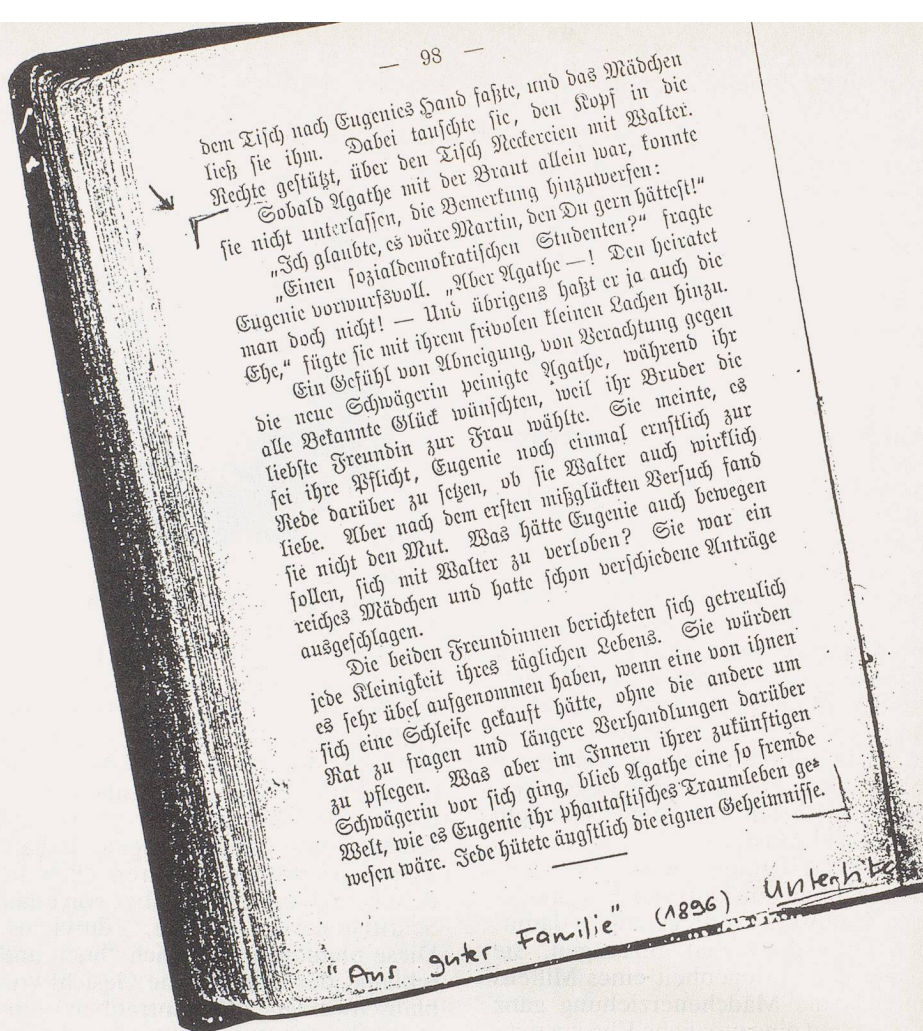 — 98 —
dem Tisch nach Eugenies Hand faßte, und das Mädchen
ließ sie ihm. Dabei tauschte sie, den Kopf in die
Rechte gestützt, über den Tisch Neckereien mit Walter.
Sobald Agathe mit der Braut allein war, konnte
sie nicht unterlassen, die Bemerkung hinzuwerfen:
„Ich glaubte, es wäre Martin, den Du gern hättest!“
„Einen sozialdemokratischen Studenten?“ fragte
Eugenie vorwurfsvoll. „Aber Agathe —! Den heiratet
man doch nicht! — Und übrigens haßt er ja auch die
Ehe,“ fügte sie mit ihrem frivolen kleinen Lachen hinzu.
Ein Gefühl von Abneigung, von Verachtung gegen
die neue Schwägerin peinigte Agathe, während ihr
alle Bekannte Glück wünschten, weil ihr Bruder die
liebste Freundin zur Frau wählte. Sie meinte, es
sei ihre Pflicht, Eugenie noch einmal ernstlich zur
Rede darüber zu setzen, ob sie Walter auch wirklich
liebe. Aber nach dem ersten mißglückten Versuch fand
sie nicht den Mut. Was hätte Eugenie auch bewegen
sollen, sich mit Walter zu verloben? Sie war ein
reiches Mädchen und hatte schon verschiedene Anträge
ausgeschlagen.
Die beiden Freundinnen berichteten sich getreulich
jede Kleinigkeit ihres täglichen Lebens. Sie würden
es sehr übel aufgenommen haben, wenn eine von ihnen
sich eine Schleife gekauft hätte, ohne die andere um
Rat zu fragen und längere Verhandlungen darüber
zu pflegen. Was aber im Innern ihrer zukünftigen
Schwägerin vor sich ging, blieb Agathe eine so fremde
Welt, wie es Eugenie ihr phantastisches Traumleben ge-
wesen wäre. Jede hütete ängstlich die eignen Geheimnisse.
"Aus guter Familie" (1896) Untertitel